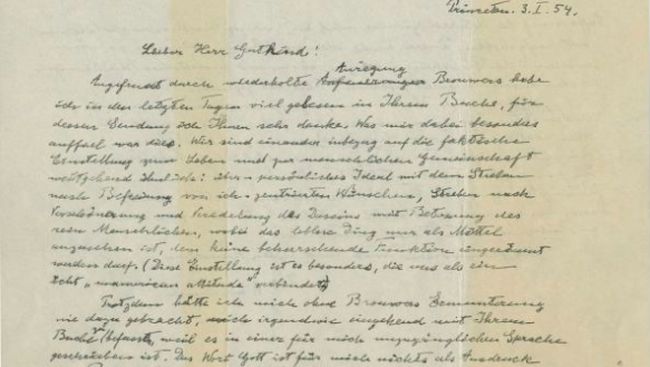 Princeton. 3. I. 54.
Lieber Herr Gutkind!
Anregung
Angefeuert durch wiederholte Brouwers habe
ich in den letzten Tagen viel gelesen in Ihrem Buche, für
dessen Sendung ich Ihnen sehr danke. Was mir dabei besonders
auffiel war dies. Wir sind einander inbezug auf die faktische
Einstellung zum Leben und zur menschlichen Gemeinschaft
weitgehend ähnlich: über-persönliches Ideal mit dem Streben
nach Befreiung von ich-zentrierten Wünschen, Streben nach
Verschönerung und Veredelung des Daseins mit Betonung des
rein Menschlichen, wobei das leblose Ding nur als Mittel
anzusehen ist, dem keine beherrschende Funktion eingeräumt
werden darf. (Diese Einstellung ist es besonders, die uns als ein
echt "unamerican attitude" verbindet)
Trotzdem hätte ich mich ohne Brouwers Ermunterung
nie dazu gebracht, mich irgendwie eingehend mit Ihrem
Buche zu befassen, weil es in einer für mich unzugänglichen Sprache
geschrieben ist. Das Wort Gott ist für mich nichts als Ausdruck